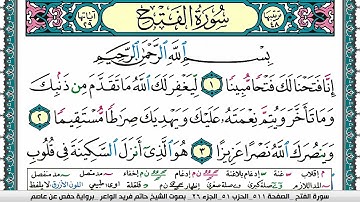 سُورَةُ الْفَتْحِ
بِسْمِ اللَّهِ الرَّحْمَٰنِ الرَّحِيمِ
إِنَّا فَتَحْنَا لَكَ فَتْحًا مُّبِينًا ١ لِّيَغْفِرَ لَكَ اللَّهُ مَا تَقَدَّمَ مِن ذَنۢبِكَ
وَمَا تَأَخَّرَ وَيُتِمَّ نِعْمَتَهُۥ عَلَيْكَ وَيَهْدِيَكَ صِرَٰطًا مُّسْتَقِيمًا ٢
وَيَنصُرَكَ اللَّهُ نَصْرًا عَزِيزًا ٣ هُوَ الَّذِىٓ أَنزَلَ السَّكِينَةَ فِى قُلُوبِ
سورة الفتح _ الصفحة ٥١١ _ الحزب ٥١ _ الجزء ٢٦ _ بصوت الشيخ حاتم فريد الواعر _ برواية حفص عن عاصم